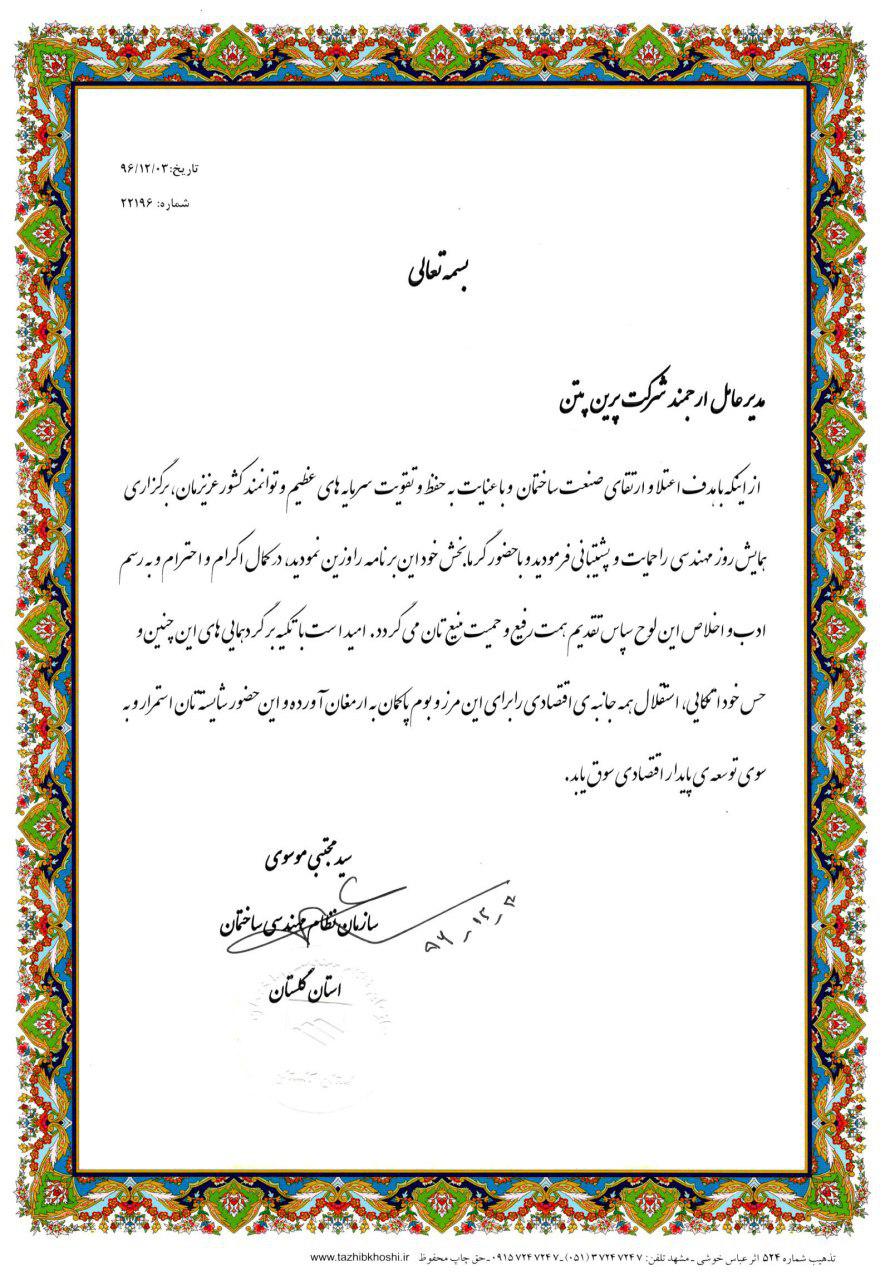 تاریخ: ۹۶/۱۲/۰۳
شماره: ۲۲۱۹۶
بسمه تعالی
مدیر عامل ارجمند شرکت پرین بتن
از اینکه با هدف اعتلا و ارتقای صنعت ساختمان و با عنایت به حفظ و تقویت سرمایه های عظیم و توانمند کشور عزیزمان، برگزاری
همایش روز مهندسی را حمایت و پشتیبانی فرمودید و با حضور گرمابخش خود این برنامه را وزین نمودید، در کمال اکرام و احترام و به رسم
ادب و اخلاص این لوح سپاس تقدیم همت رفیع و حمیت منیع تان می گردد. امید است با تکیه بر گردهمایی های این چنین و
حس خود اتکایی، استقلال همه جانبه ی اقتصادی را برای این مرز و بوم پاکان به ارمغان آورده و این حضور شایسته تان استمرار و به
سوی توسعه ی پایدار اقتصادی سوق یابد.
سید مجتبی موسوی
سازمان نظام مهندسی ساختمان
استان گلستان
تذهیب شماره ۵۲۴ اثر عباس خوشی ـ مشهد تلفن: ۳۷۲۴۷۲۴۷ (۰۵۱) ـ ۰۹۱۵۷۲۴۷۲۴۷ ـ حق چاپ محفوظ www.tazhibkhoshi.ir